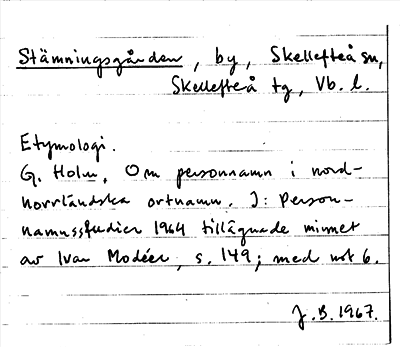 Stämningsgården, by, Skellefteå sn,
Skellefteå tg, Vb. l.
Etymologi.
G. Holm, Om personnamn i nord-
norrländska ortnamn. I: Person-
namnsstudier 1964 tillägnade minnet
av Ivar Modéer, s. 149; med not 6.
J.B. 1967.